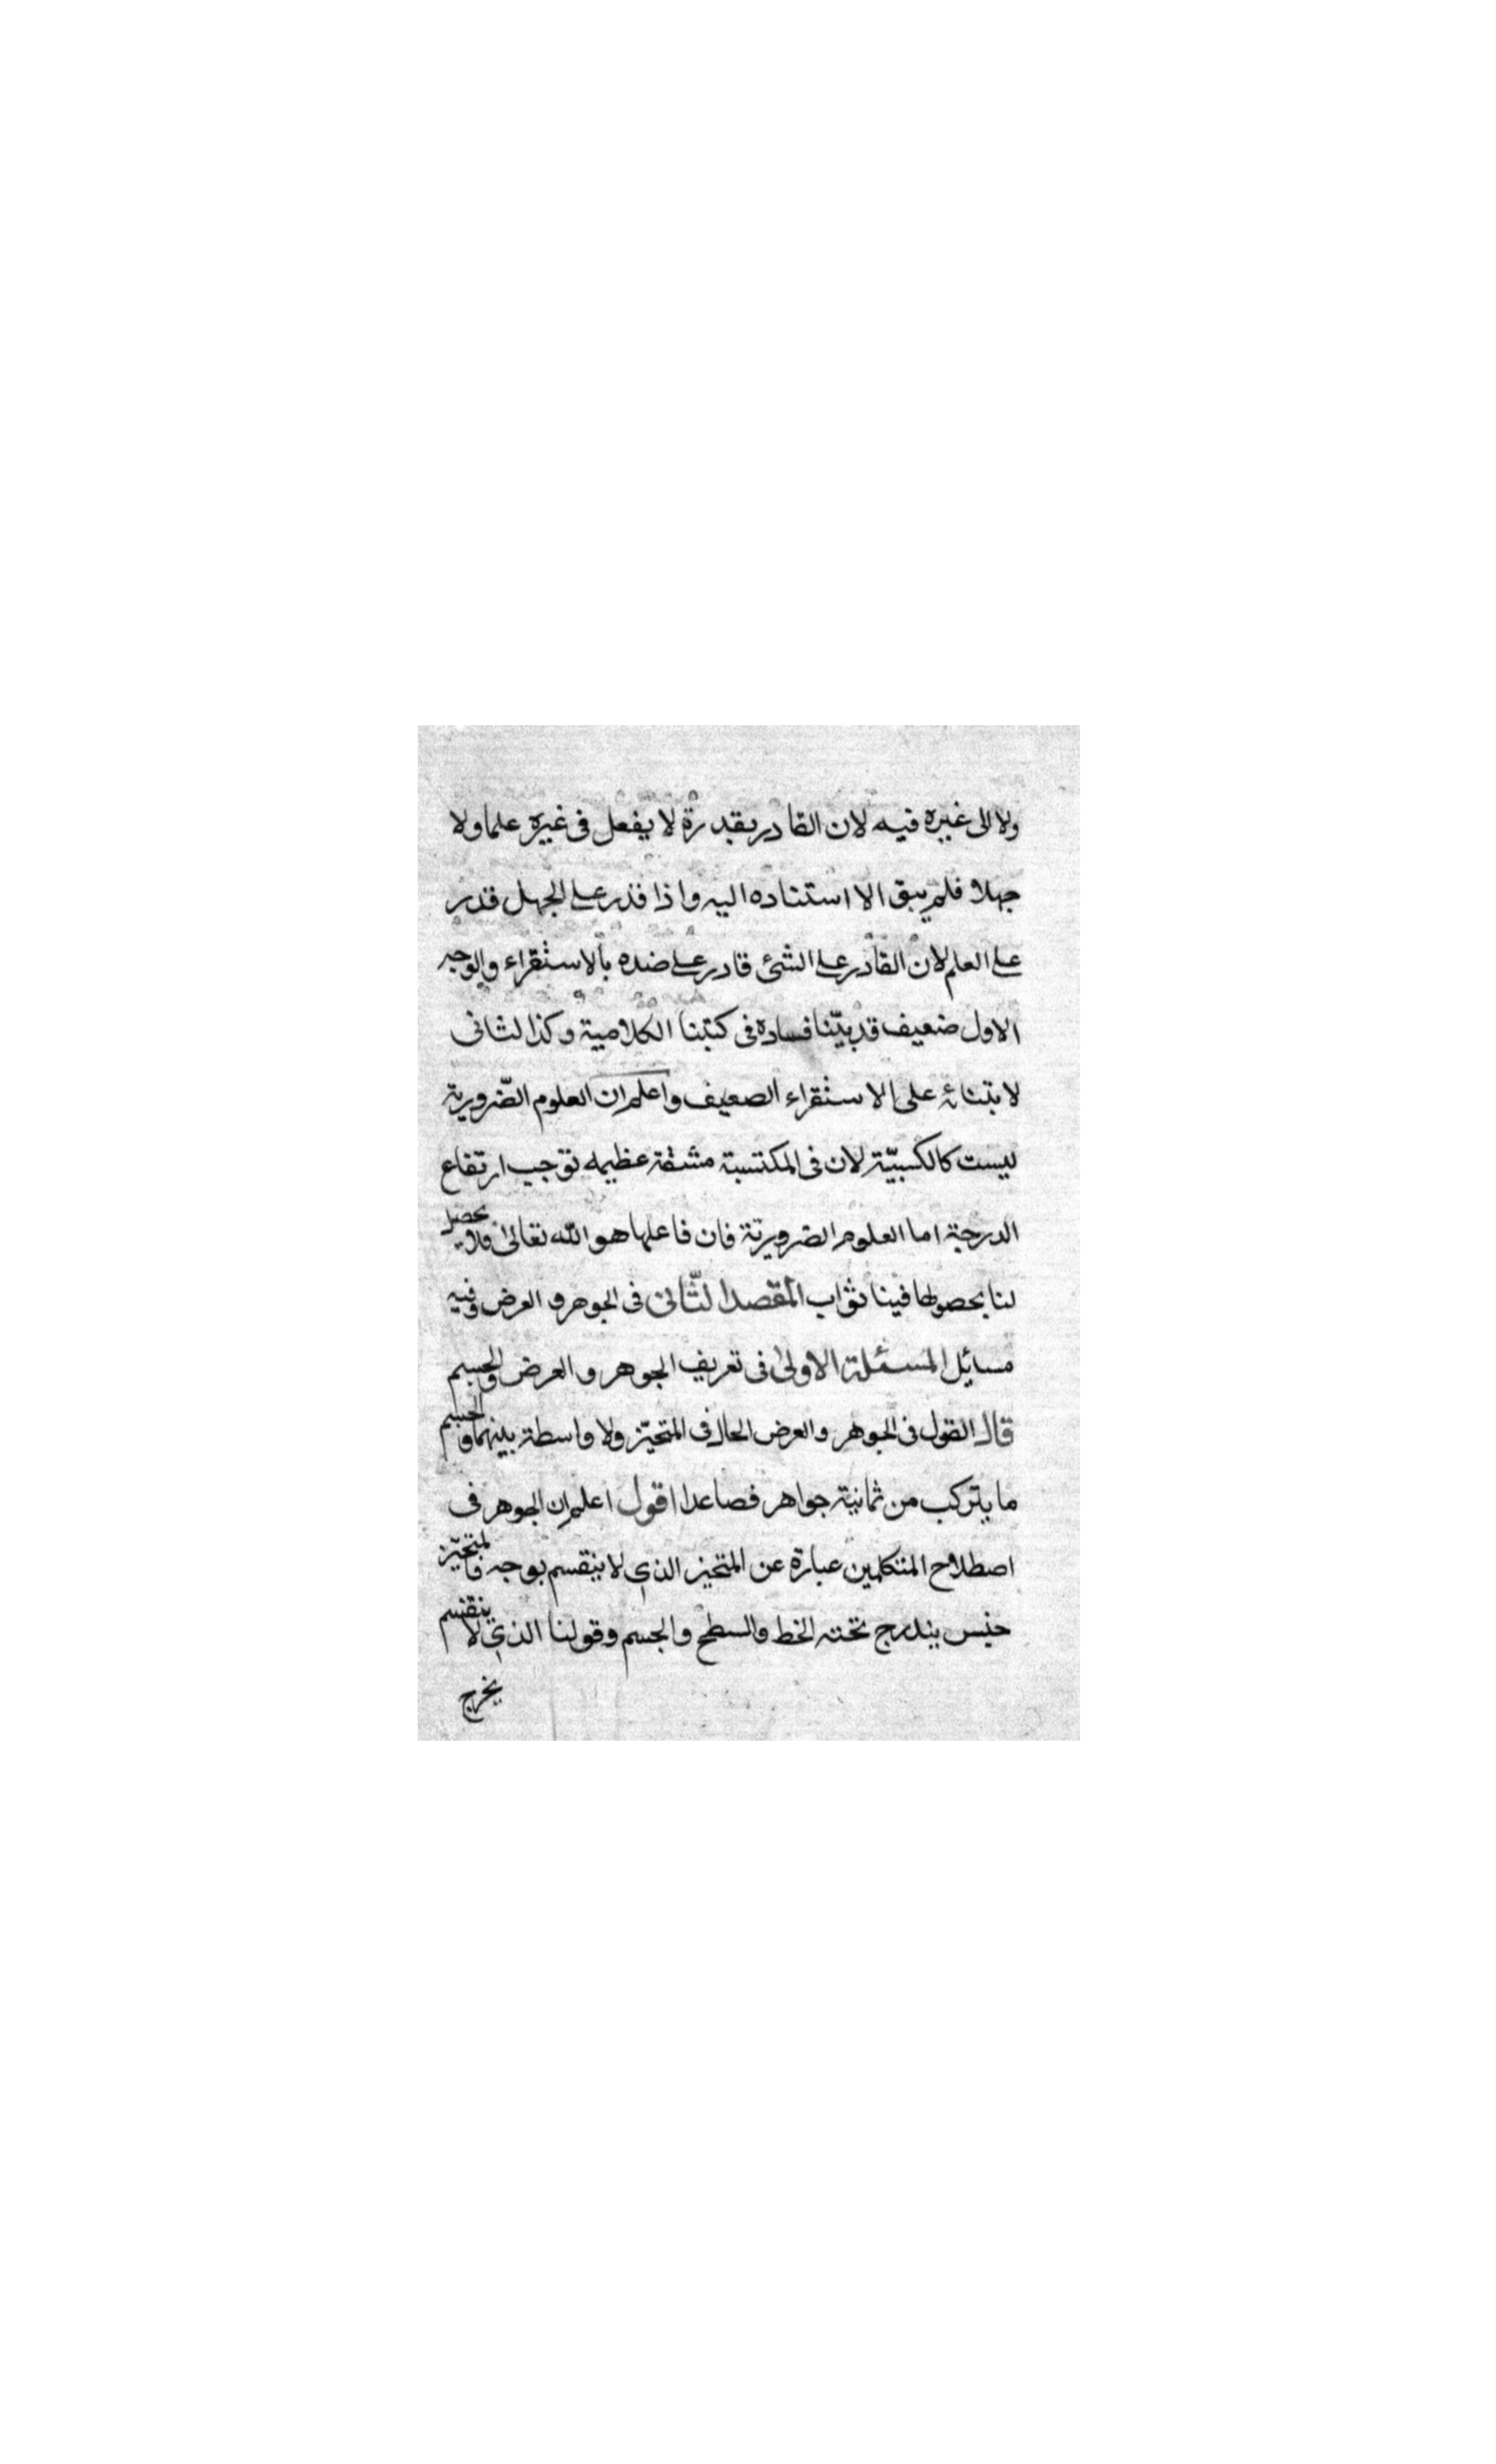 ولا الى غيره فيه لان القادر بقدرة لا يفعل فى غيره علما ولا
جهلا فلم يبق الا استناده اليه واذا قدر على الجهل قدر
على العلم لان القادر على الشئ قادر على ضده بالاستقراء والوجه
الاول ضعيف قد بيّنا فساده فى كتبنا الكلامية وكذا لثانى
لابتنائه على الاستقراء الضعيف واعلم ان العلوم الضّرورية
ليست كالكسبيّة لان فى المكتسبة مشقة عظيمه توجب ارتفاع
الدرجة اما العلوم الضرورية فان فاعلها هو الله تعالى فلا يحصل
لنا بحصولها فينا ثواب المقصد الثّانى فى الجوهر و العرض وفيه
مسائل المسئلة الاولى فى تعريف الجوهر و العرض والجسم
قال القول فى الجوهر والعرض الحال فى المتحيّز ولا واسطة بينهما والجسم
ما يتركب من ثمانية جواهر فصاعدا اقول اعلم ان الجوهر فى
اصطلاح المتكلمين عبارة عن المتحيز الذى لا ينقسم بوجه فالمتحيّز
جنس يندرج تحته الخط والسطح والجسم وقولنا الذى لا ينقسم
يخرج